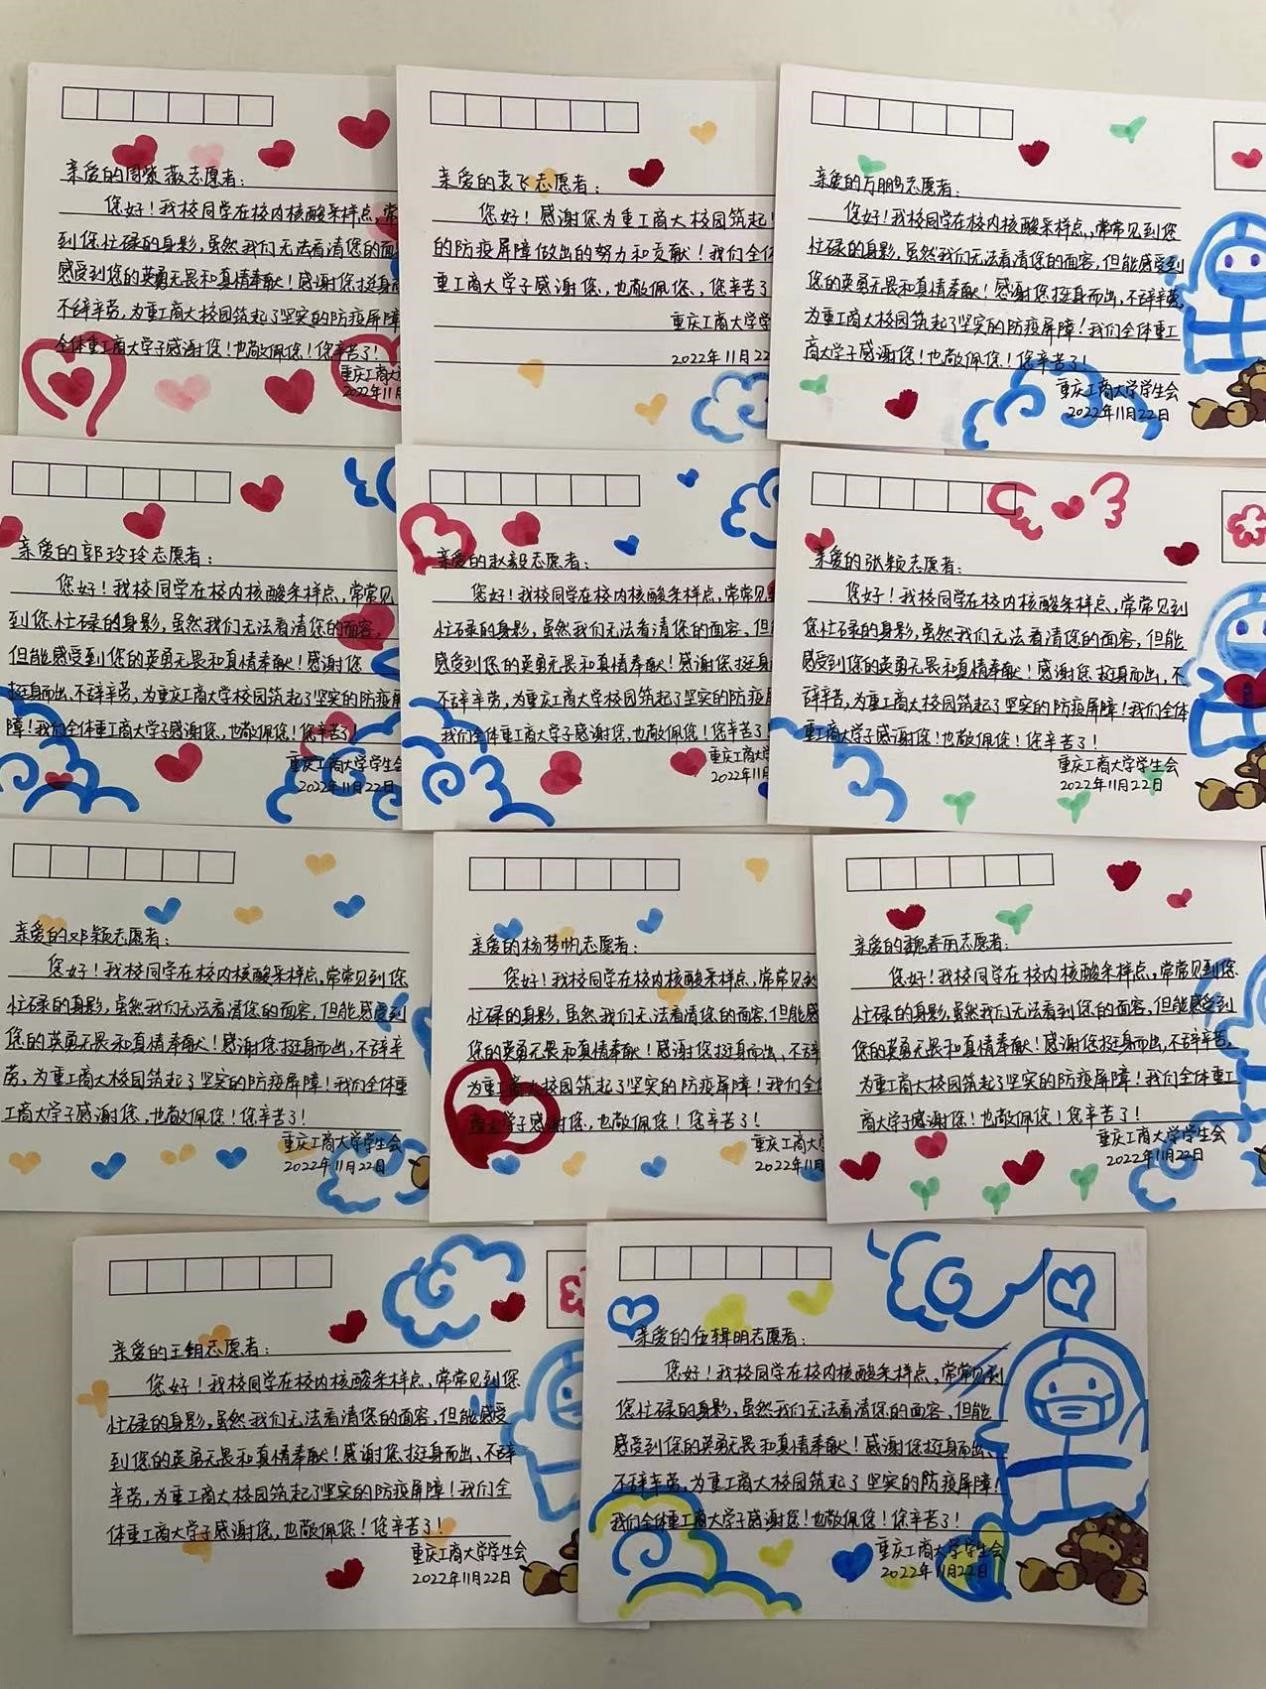 亲爱的周紫薇志愿者：
您好！我校同学在校内核酸采样点，常
到您忙碌的身影，虽然我们无法看清您的面
感受到您的英勇无畏和真情奉献！感谢您挺身
不辞辛劳，为重工商大校园筑起了坚实的防疫屏障
全体重工商大学子感谢您！也敬佩您！您辛苦了！
重庆工商大
2022年11月
亲爱的袁飞志愿者：
您好！感谢您为重工商大校园筑起
的防疫屏障做出的努力和贡献！我们全体
重工商大学子感谢您，也敬佩您，您辛苦了
重庆工商大学学
2022年11月22
亲爱的万鹏志愿者：
您好！我校同学在校内核酸采样点，常常见到您
忙碌的身影，虽然我们无法看清您的面容，但能感受到
您的英勇无畏和真情奉献！感谢您挺身而出，不辞辛劳，
为重工商大校园筑起了坚实的防疫屏障！我们全体重工
商大学子感谢您！也敬佩您！您辛苦了！
重庆工商大学学生会
2022年11月22日
亲爱的郭玲玲志愿者：
您好！我校同学在校内核酸采样点，常常见
到您忙碌的身影，虽然我们无法看清您的面容，
但能感受到您的英勇无畏和真情奉献！感谢您
挺身而出、不辞辛劳，为重庆工商大学校园筑起了坚实的防疫屏
障！我们全体重工商大学子感谢您，也敬佩您！您辛苦了！
重庆工商大学学生会
2022年11月22日
亲爱的赵毅志愿者：
您好！我校同学在校内核酸采样点，常常见
忙碌的身影，虽然我们无法看清您的面容，但
感受到您的英勇无畏和真情奉献！感谢您挺身
不辞辛劳，为重庆工商大学校园筑起了坚实的防疫屏
我们全体重工商大学子感谢您，也敬佩您！您辛苦了！
重庆工商大学
2022年11月
亲爱的张颖志愿者：
您好！我校同学在校内核酸采样点，常常见到
您忙碌的身影，虽然我们无法看清您的面容，但能
感受到您的英勇无畏和真情奉献！感谢您挺身而出，不
辞辛劳，为重庆工商大学校园筑起了坚实的防疫屏障！我们全体
重工商大学子感谢您！也敬佩您！您辛苦了！
重庆工商大学学生会
2022年11月22日
亲爱的邓颖志愿者：
您好！我校同学在校内核酸采样点，常常见到您
忙碌的身影，虽然我们无法看清您的面容，但能感受到
您的英勇无畏和真情奉献！感谢您挺身而出，不辞辛
劳，为重工商大校园筑起了坚实的防疫屏障！我们全体重
工商大学子感谢您，也敬佩您！您辛苦了！
重庆工商大学学生会
2022年11月22日
亲爱的杨梦帆志愿者：
您好！我校同学在校内核酸采样点，常常见到
忙碌的身影，虽然我们无法看清您的面容，但能感
您的英勇无畏和真情奉献！感谢您挺身而出、不辞
为重工商大校园筑起了坚实的防疫屏障！我们全体
商大学子感谢您，也敬佩您！您辛苦了！
重庆工商大学
2022年11月22
亲爱的魏春丽志愿者：
您好！我校同学在校内核酸采样点，常常见到您
忙碌的身影，虽然我们无法看到您的面容，但能感受到
您的英勇无畏和真情奉献！感谢您挺身而出，不辞辛劳，
为重工商大校园筑起了坚实的防疫屏障！我们全体重工
商大学子感谢您！也敬佩您！您辛苦了！
重庆工商大学学生会
2022年11月22日
亲爱的王钥志愿者：
您好！我校同学在校内核酸采样点，常常见到您
忙碌的身影，虽然我们无法看清您的面容，但能感受
到您的英勇无畏和真情奉献！感谢您挺身而出、不辞
辛劳，为重工商大校园筑起了坚实的防疫屏障！我们全
体重工商大学子感谢您，也敬佩您！您辛苦了！
重庆工商大学学生会
2022年11月22日
亲爱的任辑明志愿者：
您好！我校同学在校内核酸采样点，常常见到
您忙碌的身影，虽然我们无法看清您的面容，但能
感受到您的英勇无畏和真情奉献！感谢您挺身而出、
不辞辛劳，为重工商大校园筑起了坚实的防疫屏障！
我们全体重工商大学子感谢您！也敬佩您！您辛苦了！
重庆工商大学学生会
2022年11月22日